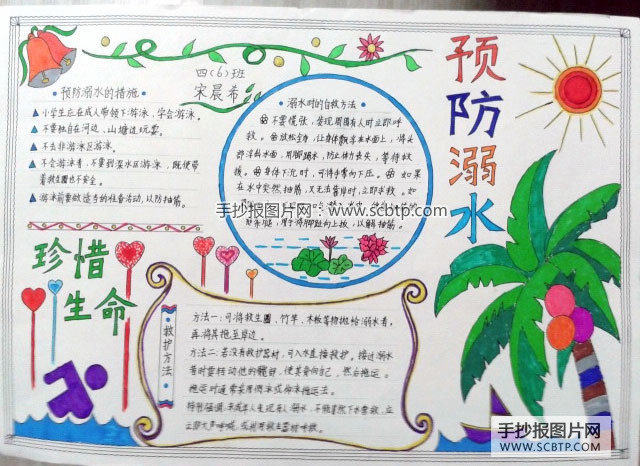 预防溺水
四(6)班
宋晨希
预防溺水的措施
▲小学生应在成人带领下游泳，学会游泳。
▲不要独自在河边、山塘边玩耍。
▲不去非游泳区游泳。
▲不会游泳者，不要到深水区游泳，既使带
着救生圈也不安全。
▲游泳前要做适当的准备活动，以防抽筋。
溺水时的自救方法
不要慌张，发现周围有人时立即呼
救。放松全身，让身体飘浮在水面上，将头
部浮出水面，用脚踢水，防止体力丧失，等待救
援。身体下沉时，可将手掌向下压。如果
在水中突然抽筋，又无法靠岸时，立即求救。如
手抄报图片网：www.scbtp.com
用手将脚趾向上扳，以解抽筋。
珍惜
生命
救护方法
方法一：可将救生圈、竹竿、木板等物抛给溺水者，
再将其拖至岸边。
方法二：若没有救护器材，可入水直接救护。接近溺水
者时要转动他的髋部，使其背向自己，然后拖运。
拖运时通常采用侧泳或仰泳拖运法。
特别强调：未成年人发现有人溺水，不能冒然下水营救，应
立即大声呼喊，或利用救生器材呼救。
手抄报图片网
WWW.SCBTP.COM